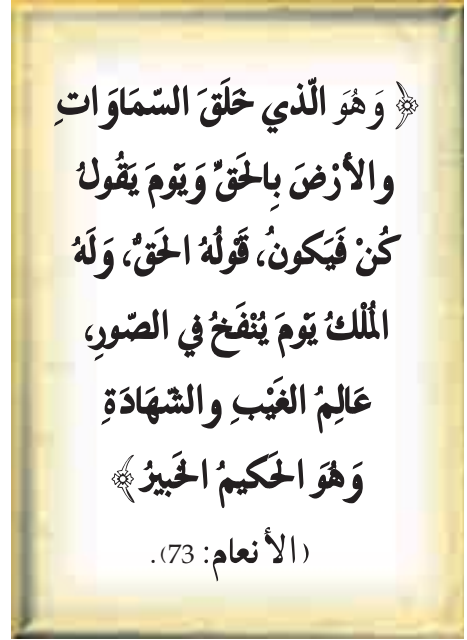 ﴿ وَهُوَ الّذي خَلَقَ السّمَاوَاتِ
والأرْضَ بِالحَقِّ وَيَوْمَ يَقُولُ
كُنْ فَيَكونُ، قَوْلُهُ الحَقُّ، وَلَهُ
المُلْكُ يَوْمَ يُنْفَخُ في الصّورِ،
عَالِمُ الغَيْبِ والشّهَادَةِ
وَهُوَ الحَكيمُ الخَبيرُ ﴾
(الأنعام: 73).